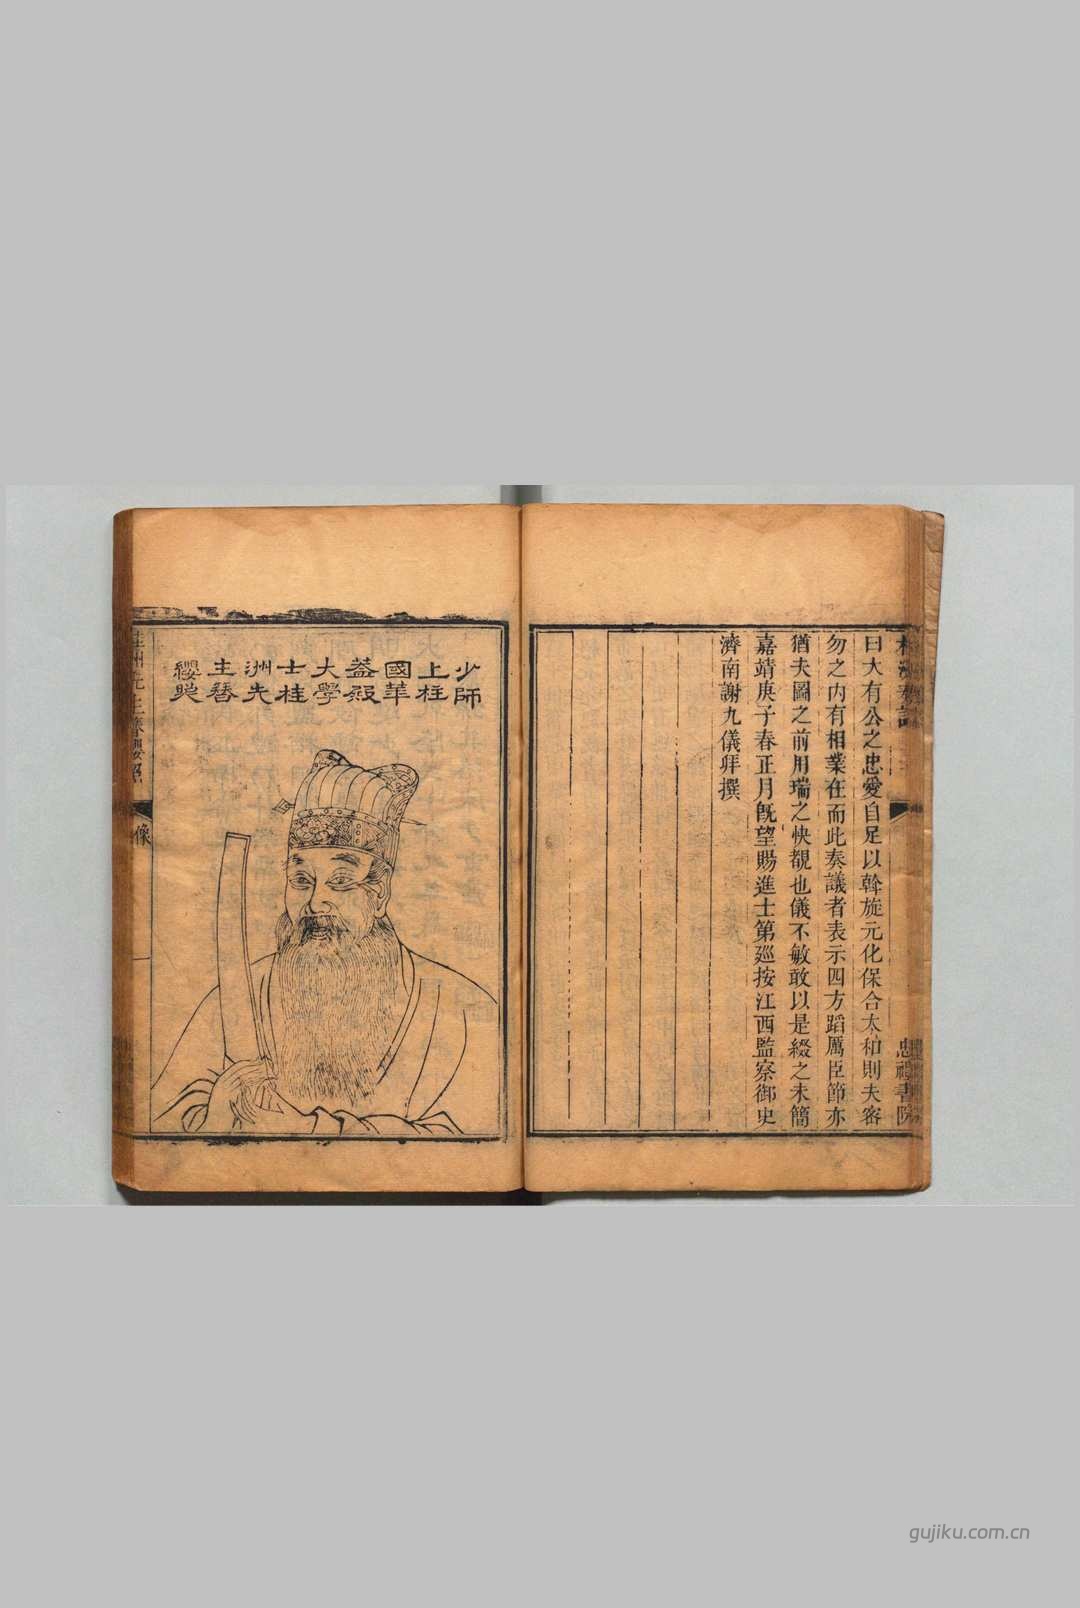 曰大有公之忠愛自足以斡旋元化保合太和則夫密
勿之内有相業在而此奏議者表示四方蹈厲臣節亦
猶夫圖之前用瑞之快覩也儀不敏敢以是綴之末簡
嘉靖庚子春正月旣望賜進士第廵按江西監察御史
濟南謝九儀拜撰
忠禮書院
少師
上柱
國華
葢殿
大學
士桂
洲先
主簪
纓
像
gujiku.com.cn